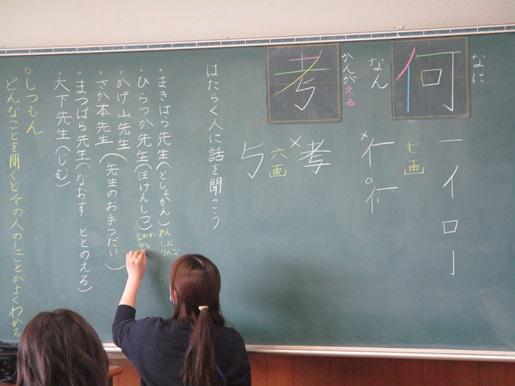 なに
何
七画
一イロ亅
なん
×イ
○イ
かんがえる
考
×考
六画
はたらく人に話を聞こう
・まきはら先生(としょかん)
・ひらつか先生(ほけんしつ)
・かげ山先生
さか本先生(先生のお手つだい)
・まつばら先生(なおす ととのえる)
・大下先生(じむ)
○しつもん
どんなことを聞くとその人のしごとがよくわかる